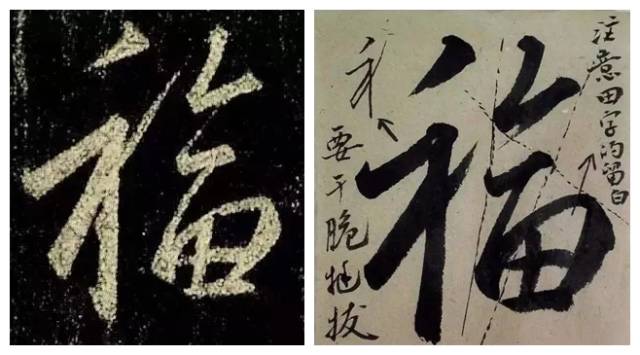 福
福
注意田字的留白
礻
要干脆挺拔